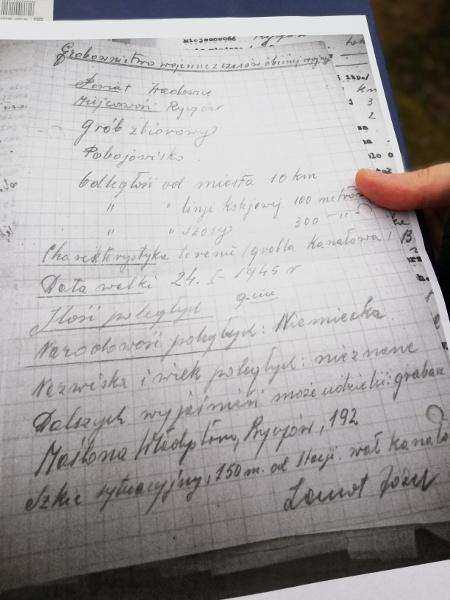 Grobownictwo wojenne z czasów obecnej wojny
Powiat Wadowice
Miejscowość Ryczów
Grób zbiorowy
Pobojowisko
Odległość od miasta 10 km
" " linji kolejowej 100 metrów
" " szosy 300 " "
Charakterystyka terenu / grobla kanałowa /
Data walki 24. I. 1945 r
Ilość poległych
Narodowość poległych: Niemiecka
Nazwiska i wiek poległych: nieznane
Dalszych wyjaśnień może udzielić: grabarz
Władysław, Ryczów, 192
Szkic sytuacyjny, 150 m. od stacji. wał kanało
Józef
km
3
2
B